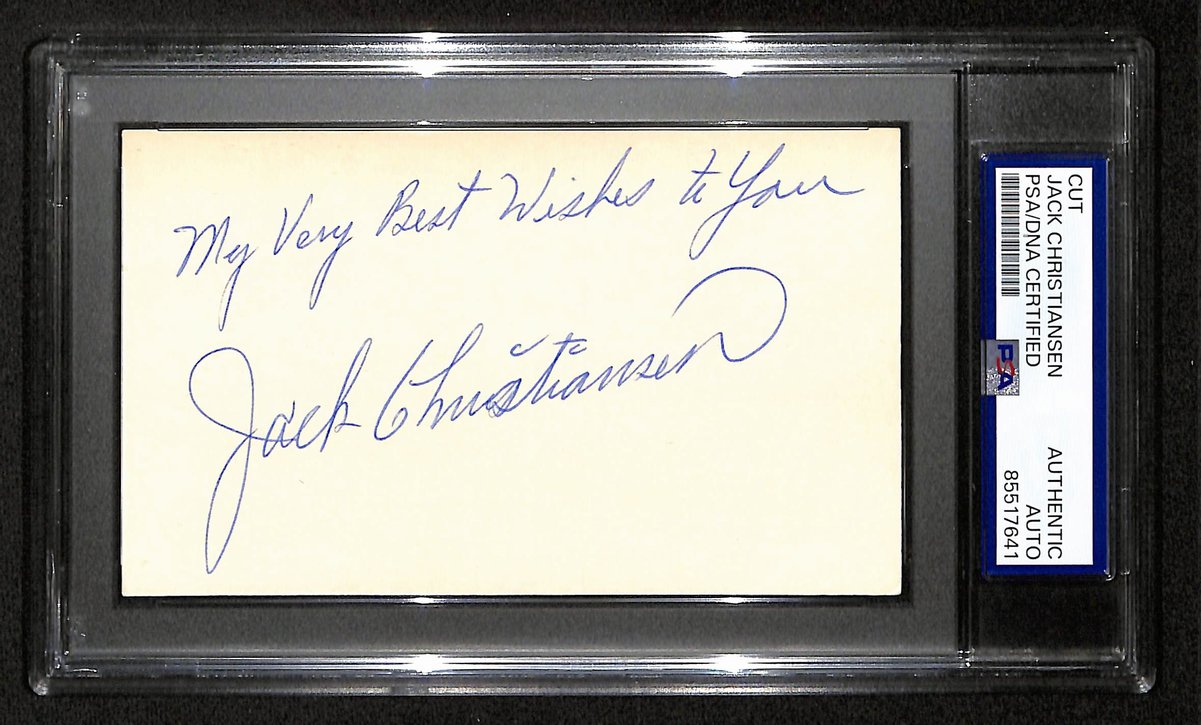 My Very Best Wishes to You
Jack Christiansen
CUT
JACK CHRISTIANSEN
PSA/DNA CERTIFIED
PSA
AUTHENTIC
AUTO
85517641